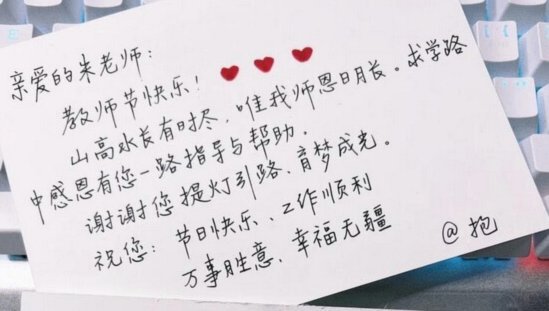 亲爱的朱老师：
教师节快乐！
山高水长有时尽，唯我师恩日月长。求学路
中感恩有您一路指导与帮助，
谢谢您提灯引路，育梦成光。
祝您：节日快乐、工作顺利
万事胜意、幸福无疆
@抱